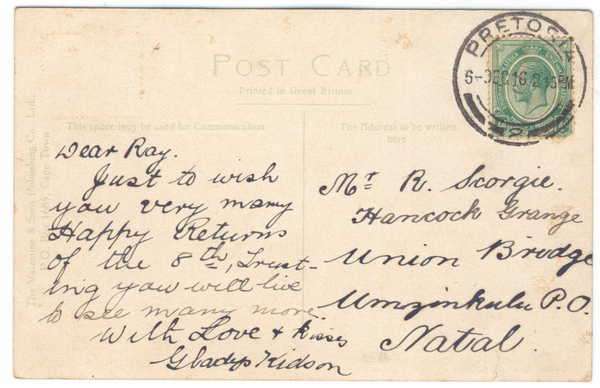 POST CARD
Printed in Great Britain
This space may be used for Communication
The Address to be written
here
PRETORIA
6-DEC 16 2 15 PM
Dear Ray.
Just to wish
you very many
Happy Returns
of the 8th, Trust-
ing you will live
to see many more.
With Love & Kisses
Gladys Kidson
Mr R. Scorgie.
Hancock Grange
Union Bridge
Umzinkulu P.O.
Natal.
The Valentine & Sons Publishing Co. Ltd.
Cape Town